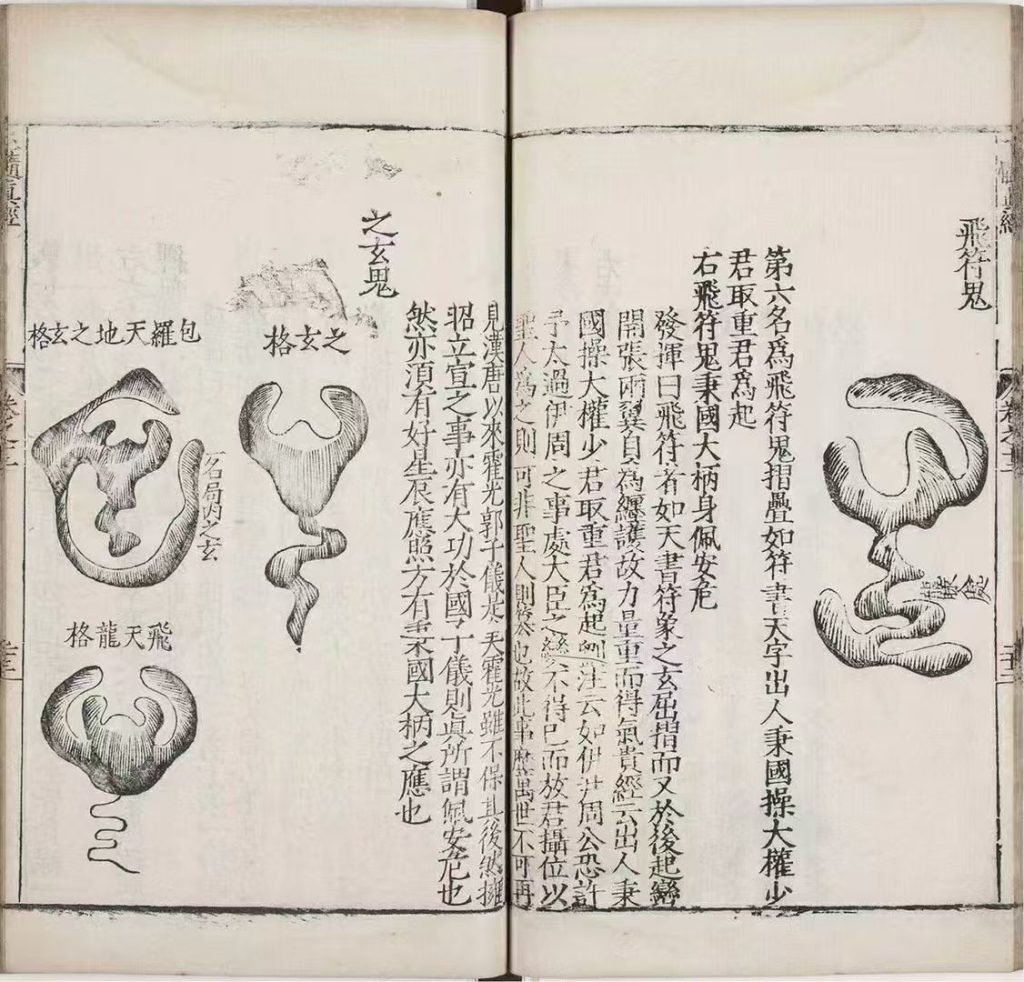 飛符鬼
第六名爲飛符鬼摺疊如符書天字出人秉國操大權少
君取重君爲起
右飛符鬼秉國大柄身佩安危
發揮曰飛符者如天書符象之玄屈摺而又於後起巒
開張兩翼自爲纏護故力量重而得氣貴經云出人秉
國操大權少君取重君爲起 注云如伊尹周公恐許
予太過伊周之事處大臣之變不得已而放君攝位以
聖人爲之則可非聖人則篡也故此事歷萬世不可再
見漢唐以來霍光郭子儀 霍光雖不保其後然擁
昭立宣之事亦有大功於國子儀則眞所謂佩安危也
然亦須有好星辰應照方有秉國大柄之應也
之玄鬼
之玄格
包羅天地之玄格
名局內之玄
飛天龍格
髓眞經
卷之十三